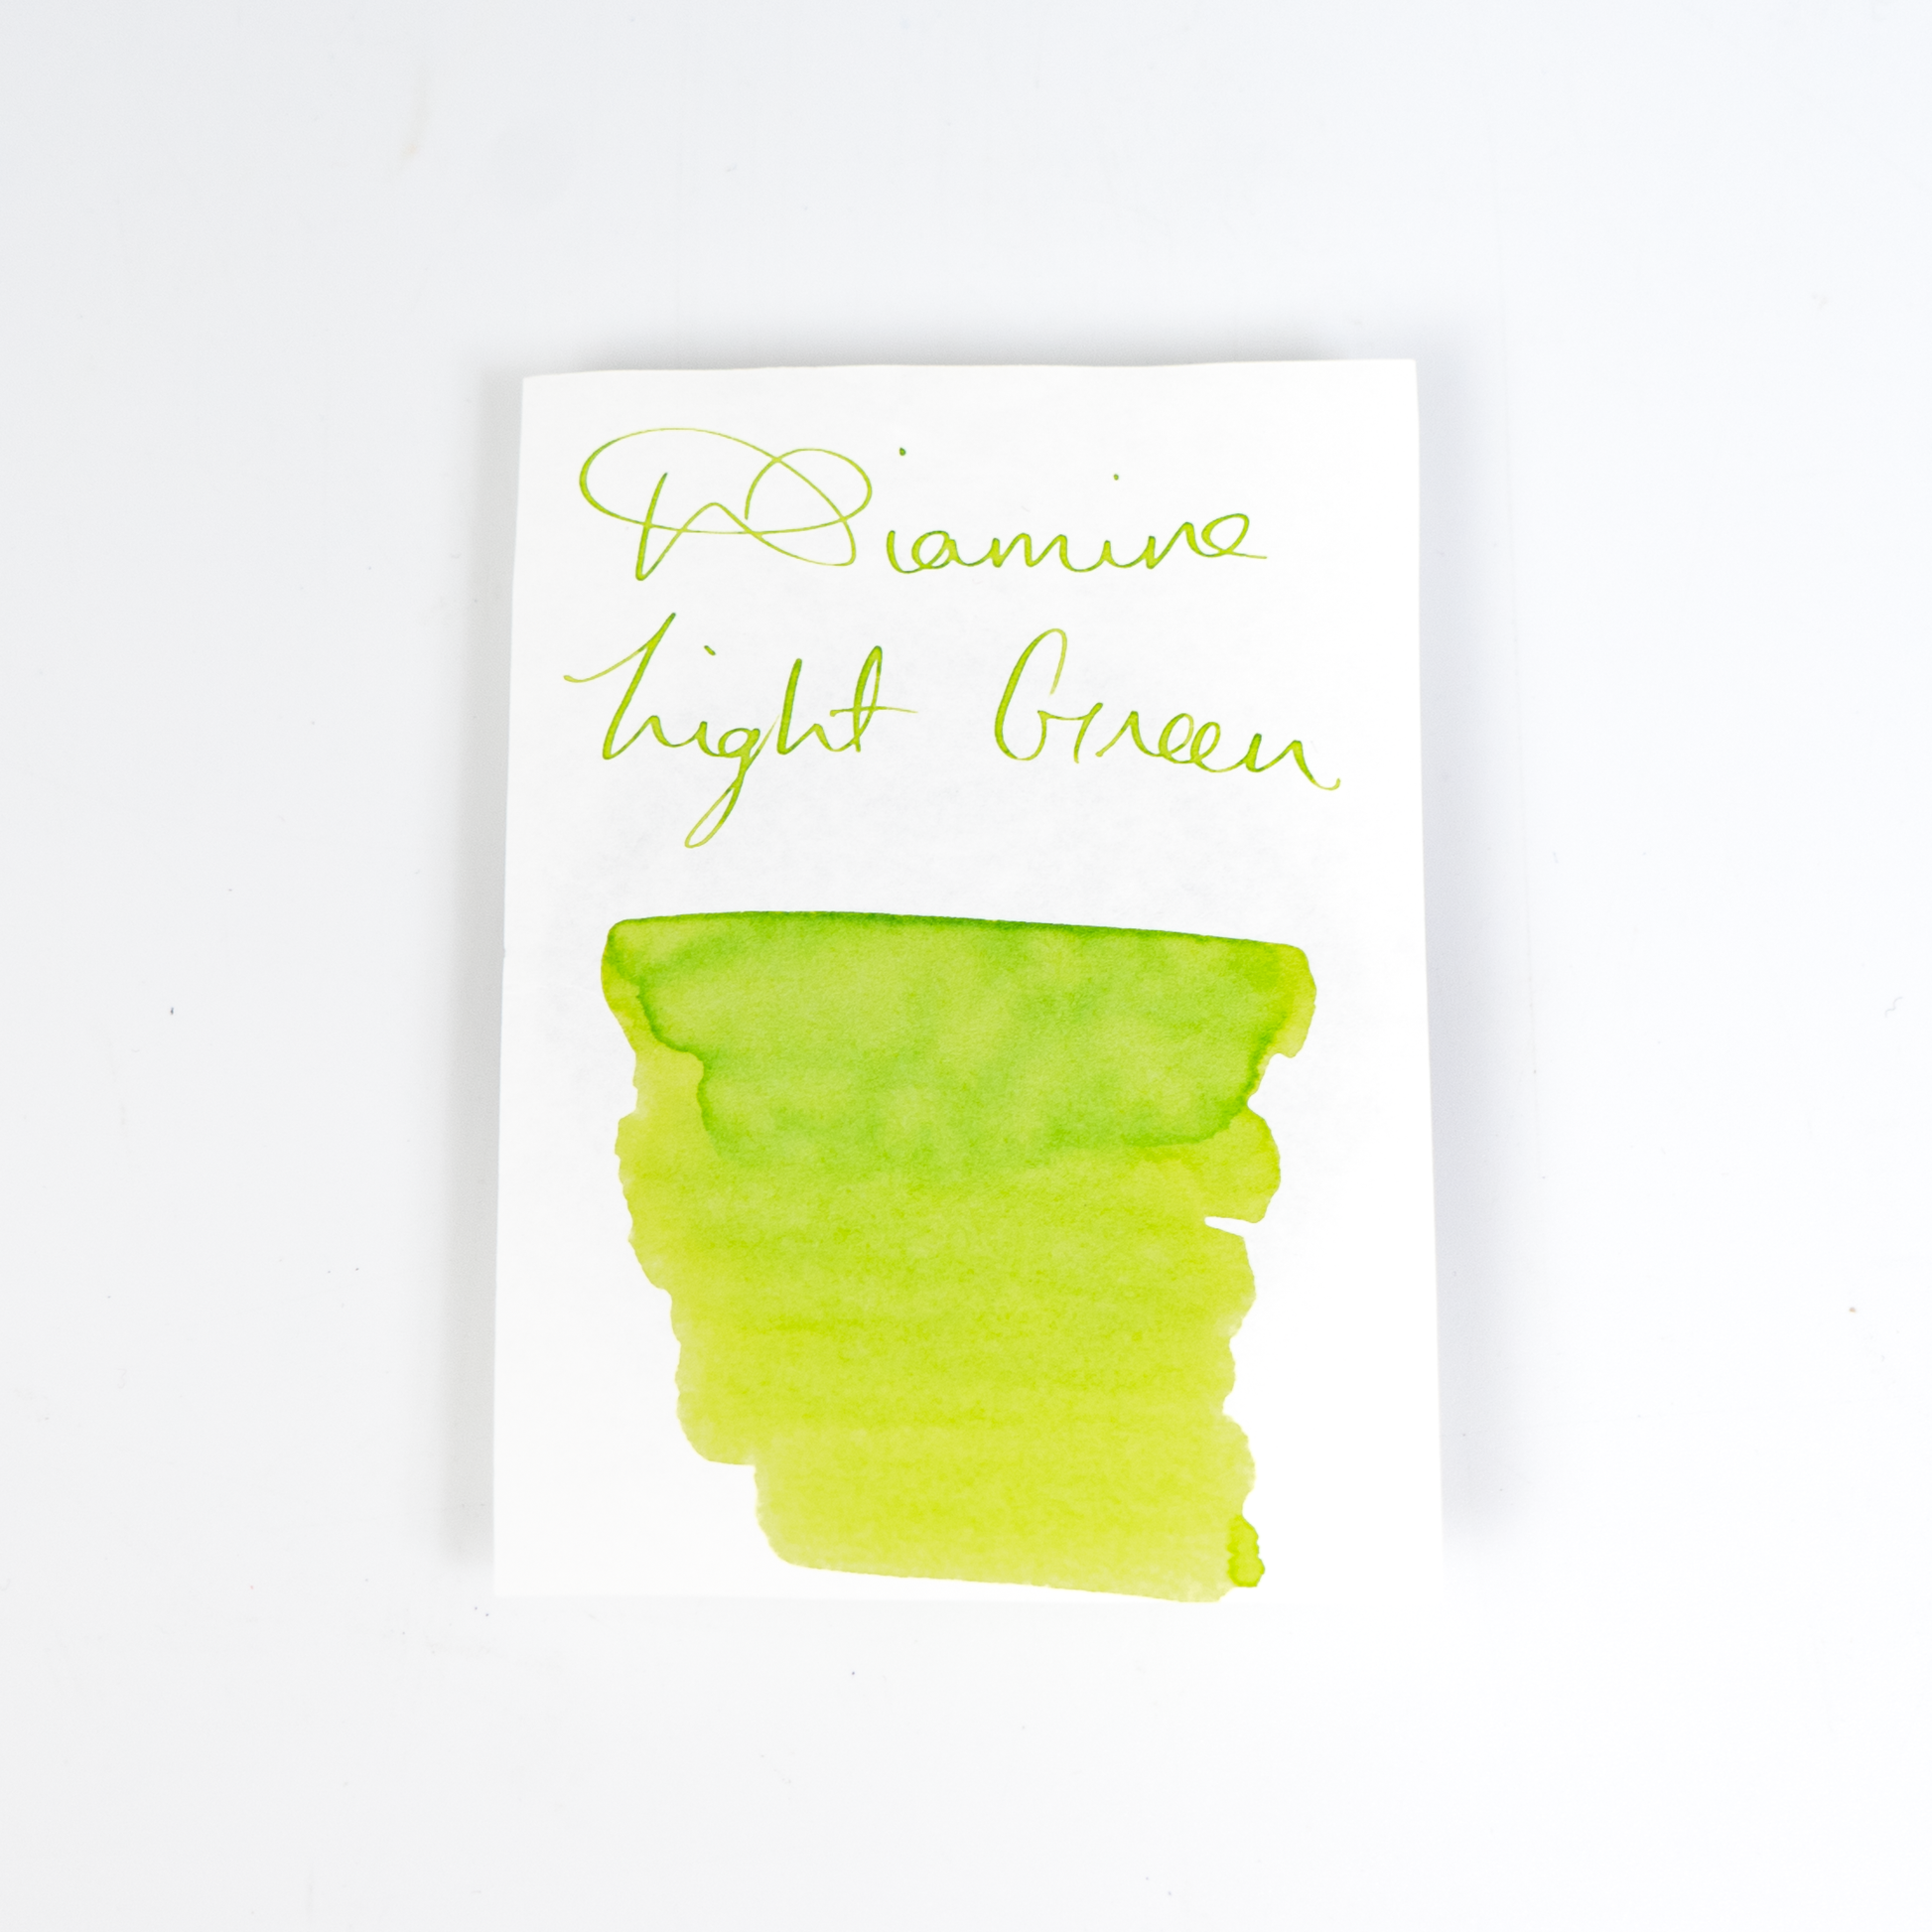 Diamine
Light Green